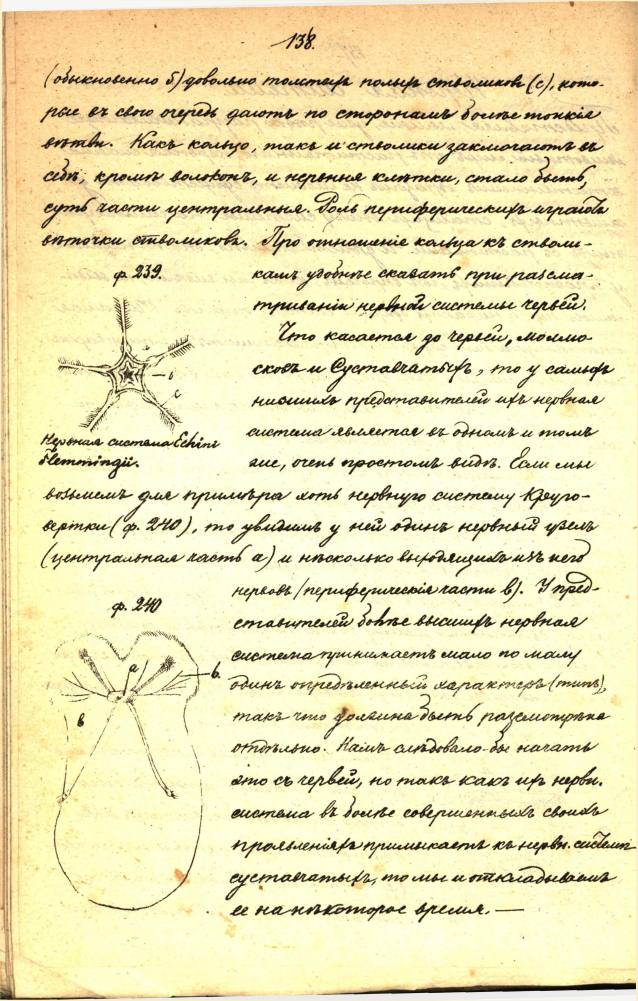 138.
(обыкновенно 5) довольно толстыхъ полыхъ стволиковъ (с), кото-
рые въ свою очередь даютъ по сторонамъ болѣе тонкія
вѣтви. Какъ кольцо, такъ и стволики заключаютъ въ
себѣ, кромѣ волоконъ, и нервныя клѣтки, стало быть,
суть части центральныя. Роль периферическихъ играютъ
вѣточки стволиковъ. Про отношеніе кольца къ стволи-
камъ удобнѣе сказать при разсма-
триваніи нервной системы червей.
Что касается до червей, моллю-
сковъ и Суставчатыхъ, то у самыхъ
низшихъ представителей ихъ нервная
система является въ одномъ и томъ
же, очень простомъ видѣ. Если мы
ф. 239.
b
c
Нервная система Echini
Flemmingii.
возьмемъ для примѣра хоть нервную систему Круго-
вертки (ф. 240), то увидимъ у ней одинъ нервный узелъ
(центральная часть a) и нѣсколько выходящихъ изъ него
нервовъ (периферическія части b). У пред-
ставителей болѣе высшихъ нервная
система принимаетъ мало по малу
одинъ опредѣленный характеръ (типъ),
такъ что должна быть разсмотрѣна
отдѣльно. Намъ слѣдовало-бы начать
это съ червей, но такъ какъ ихъ нервн.
система въ болѣе совершенныхъ своихъ
проявленіяхъ примыкаетъ къ нервн. системѣ
суставчатыхъ, то мы и откладываемъ
ее на нѣкоторое время. —
ф. 240
a
b.
b